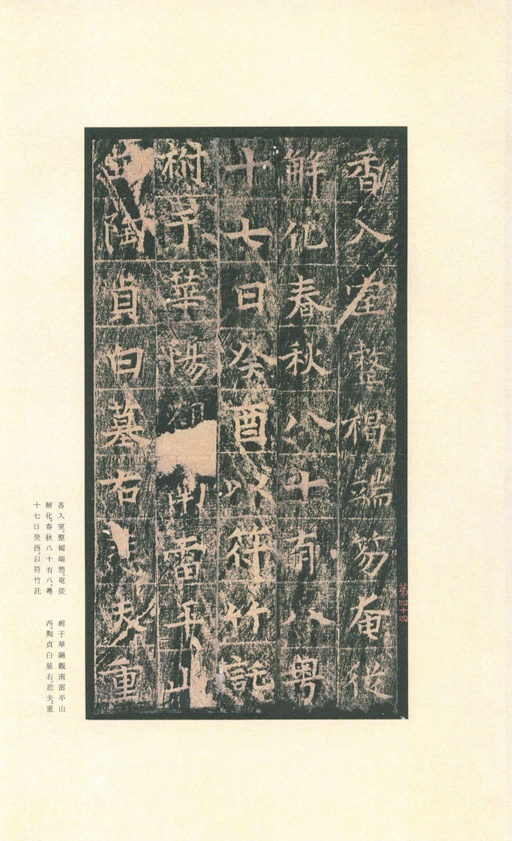 香入室整褐端笏奄從
解化春秋八十有八粤
十七日癸酉以符竹託
祔于華陽南雷平山
陶貞白墓右夫重
第四十四
香入室，整褐端笏，奄從
解化。春秋八十有八，粤
十七日癸酉，以符竹託
祔于華陽觀南雷平山
西，陶貞白墓右。悲夫，重